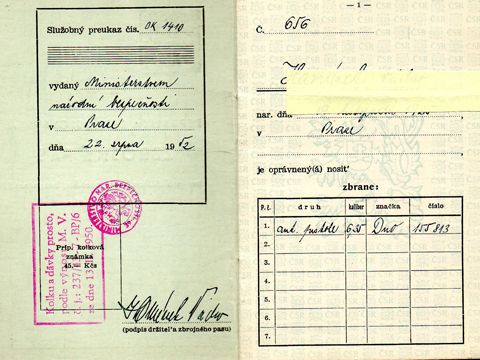 Služobný preukaz čís. OK 1410
vydaný Ministerstvem
národní bezpečnosti
v Praze
dňa 22. srpna 1952
MINISTERSTVO NÁR. BEZPEČNOSTI
Kolku a dávky prosto,
podle výnosu M. V.
č. j.: 237/ - BP/6
ze dne 13. 1950.
Príp. kolková
známka
45.— Kčs
(podpis držiteľa zbrojného pasu)
— 1 —
Č. 656
nar. dňa
v Praze
je oprávnený(á) nosiť
zbrane:
P. č. druh kaliber značka číslo
1. aut. pistole 6.35 Duo 155813
2.
3.
4.
5.
6.
7.